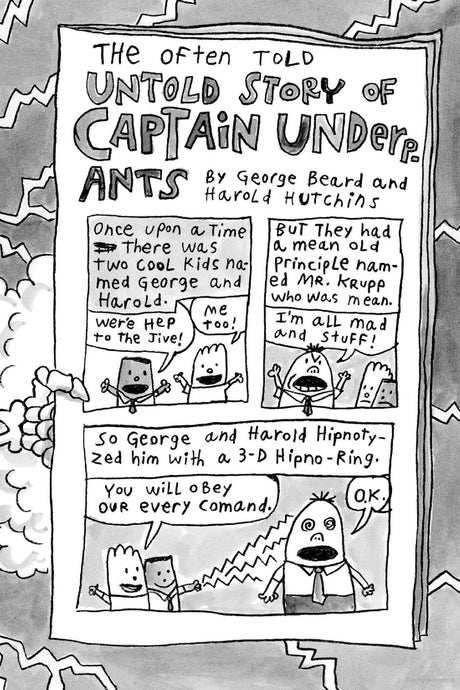 The Often Told
Untold Story of
Captain Underp-
ants
By George Beard and
Harold Hutchins
Once upon a Time
There was
two cool kids na-
med George and
Harold.
wer'e Hep
to the Jive!
me
too!
But They had
a mean old
principle nam-
ed MR. KRUPP
who was mean.
I'm all mad
and stuff!
So George and Harold Hipnoty-
zed him with a 3-D Hipno-Ring.
You will obey
our every comand.
O.K.